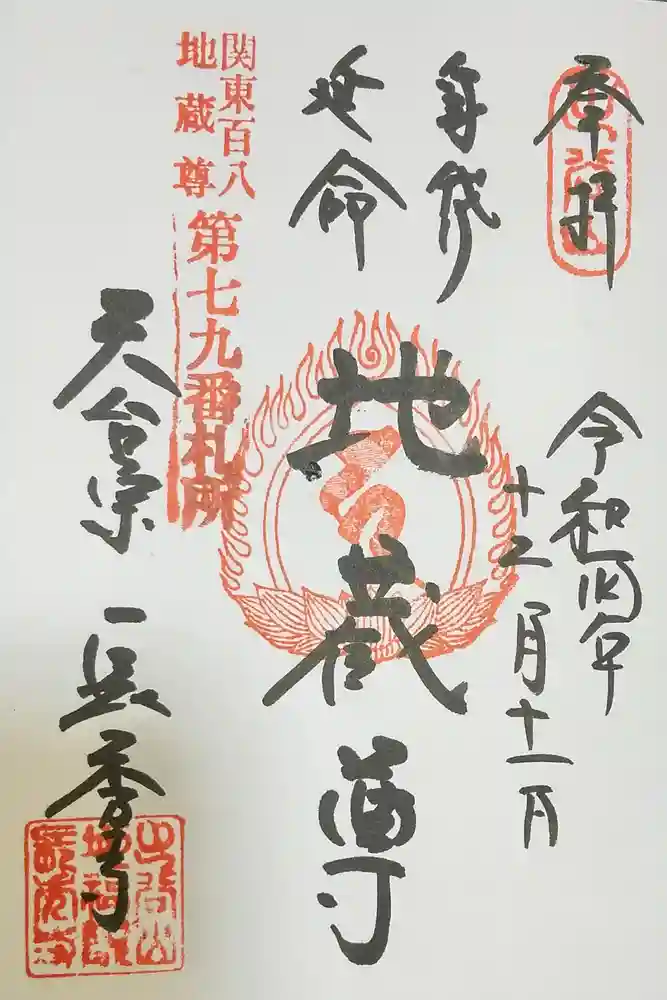 奉拝
令和四年
十二月十一日
身代
延命
地蔵尊
関東百八
地蔵尊
第七九番札所
天台宗